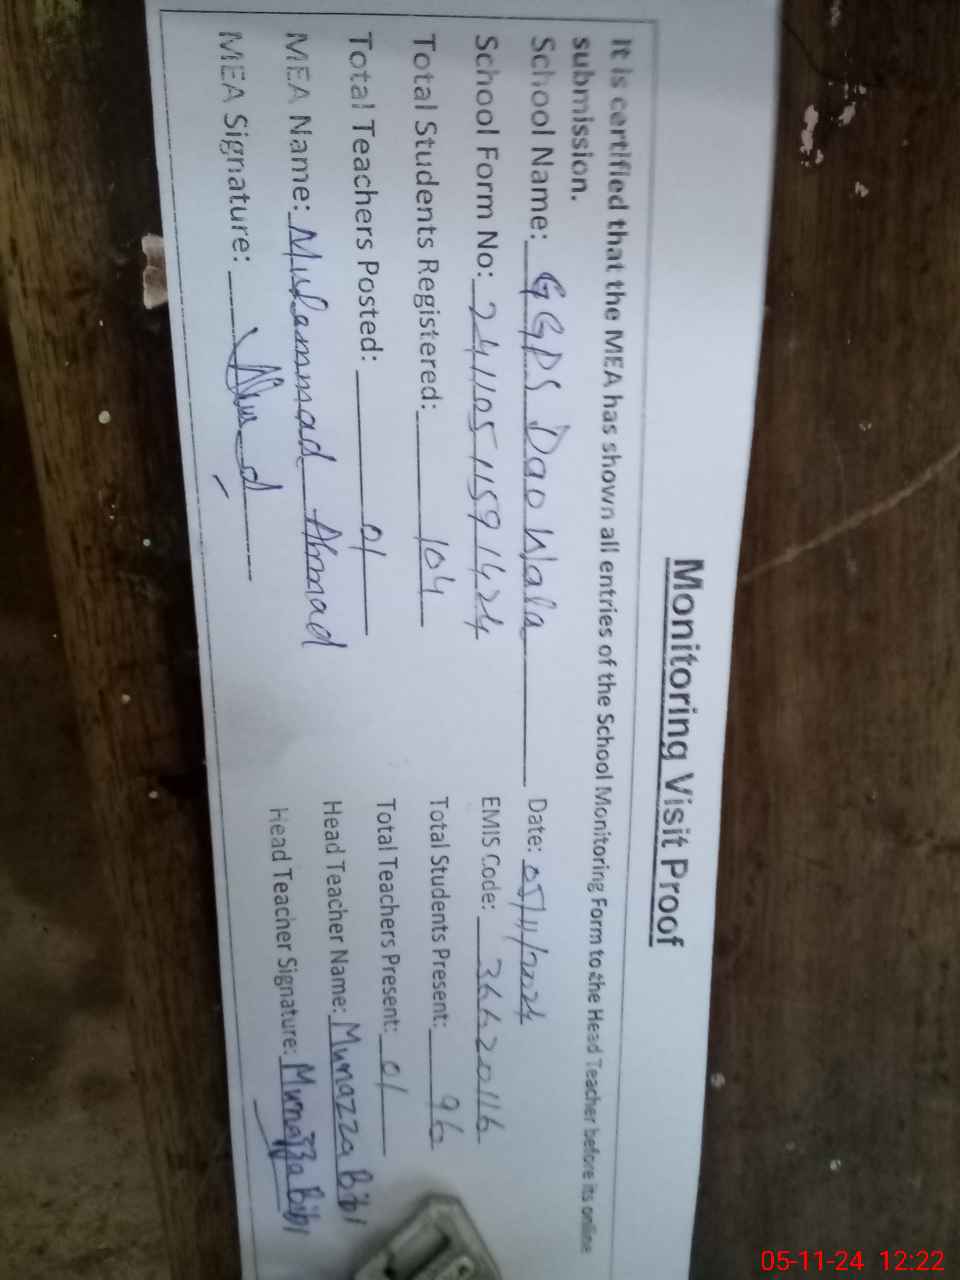 Monitoring Visit Proof
It is certified that the MEA has shown all entries of the School Monitoring Form to the Head Teacher before its online
submission.
School Name: GGPS Dao Wala Date: 05/11/2024
School Form No: 24110511591424 EMIS Code: 36620116
Total Students Registered: 104 Total Students Present: 96
Total Teachers Posted: 01 Total Teachers Present: 01
MEA Name: Muhammad Ahmad Head Teacher Name: Munazza Bibi
MEA Signature: Head Teacher Signature: Munazza Bibi
05-11-24 12:22